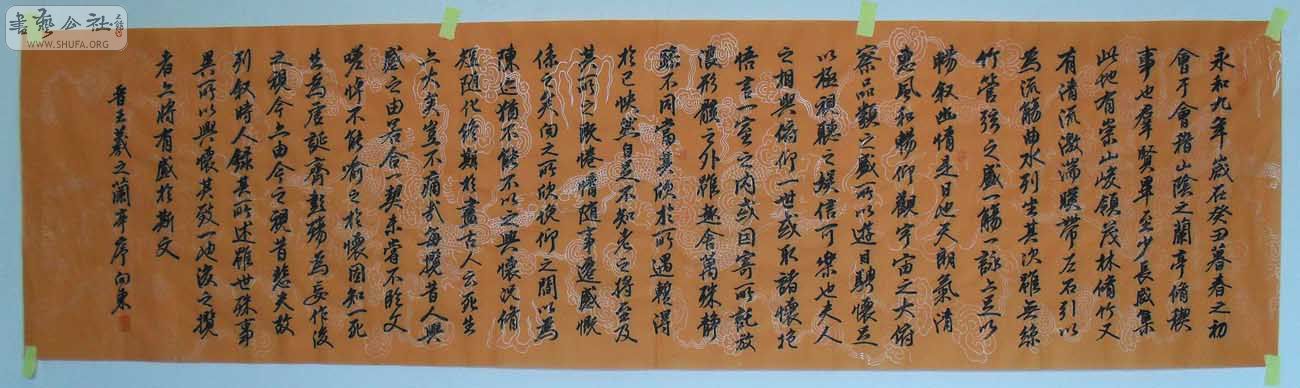 書藝公社
WWW.SHUFA.ORG
永和九年歲在癸丑暮春之初
會于會稽山陰之蘭亭脩稧
事也羣賢畢至少長咸集
此地有崇山峻領茂林脩竹又
有清流激湍暎帶左右引以
為流觴曲水列坐其次雖無絲
竹管弦之盛一觴一詠亦足以
暢敘幽情是日也天朗氣清
惠風和暢仰觀宇宙之大俯
察品類之盛所以遊目騁懷足
以極視聽之娛信可樂也夫人
之相與俯仰一世或取諸懷抱
悟言一室之內或因寄所託放
浪形骸之外雖趣舍萬殊靜
躁不同當其欣於所遇暫得
於己怏然自足不知老之將至及
其所之既惓情隨事遷感慨
係之矣向之所欣俛仰之間以為
陳迹猶不能不以之興懷況脩
短隨化終期於盡古人云死生
亦大矣豈不痛哉每攬昔人興
感之由若合一契未嘗不臨文
嗟悼不能喻之於懷固知一死
生為虛誕齊彭殤為妄作後
之視今亦由今之視昔悲夫故
列敘時人錄其所述雖世殊事
異所以興懷其致一也後之攬
者亦將有感於斯文
晉王羲之蘭亭序向東